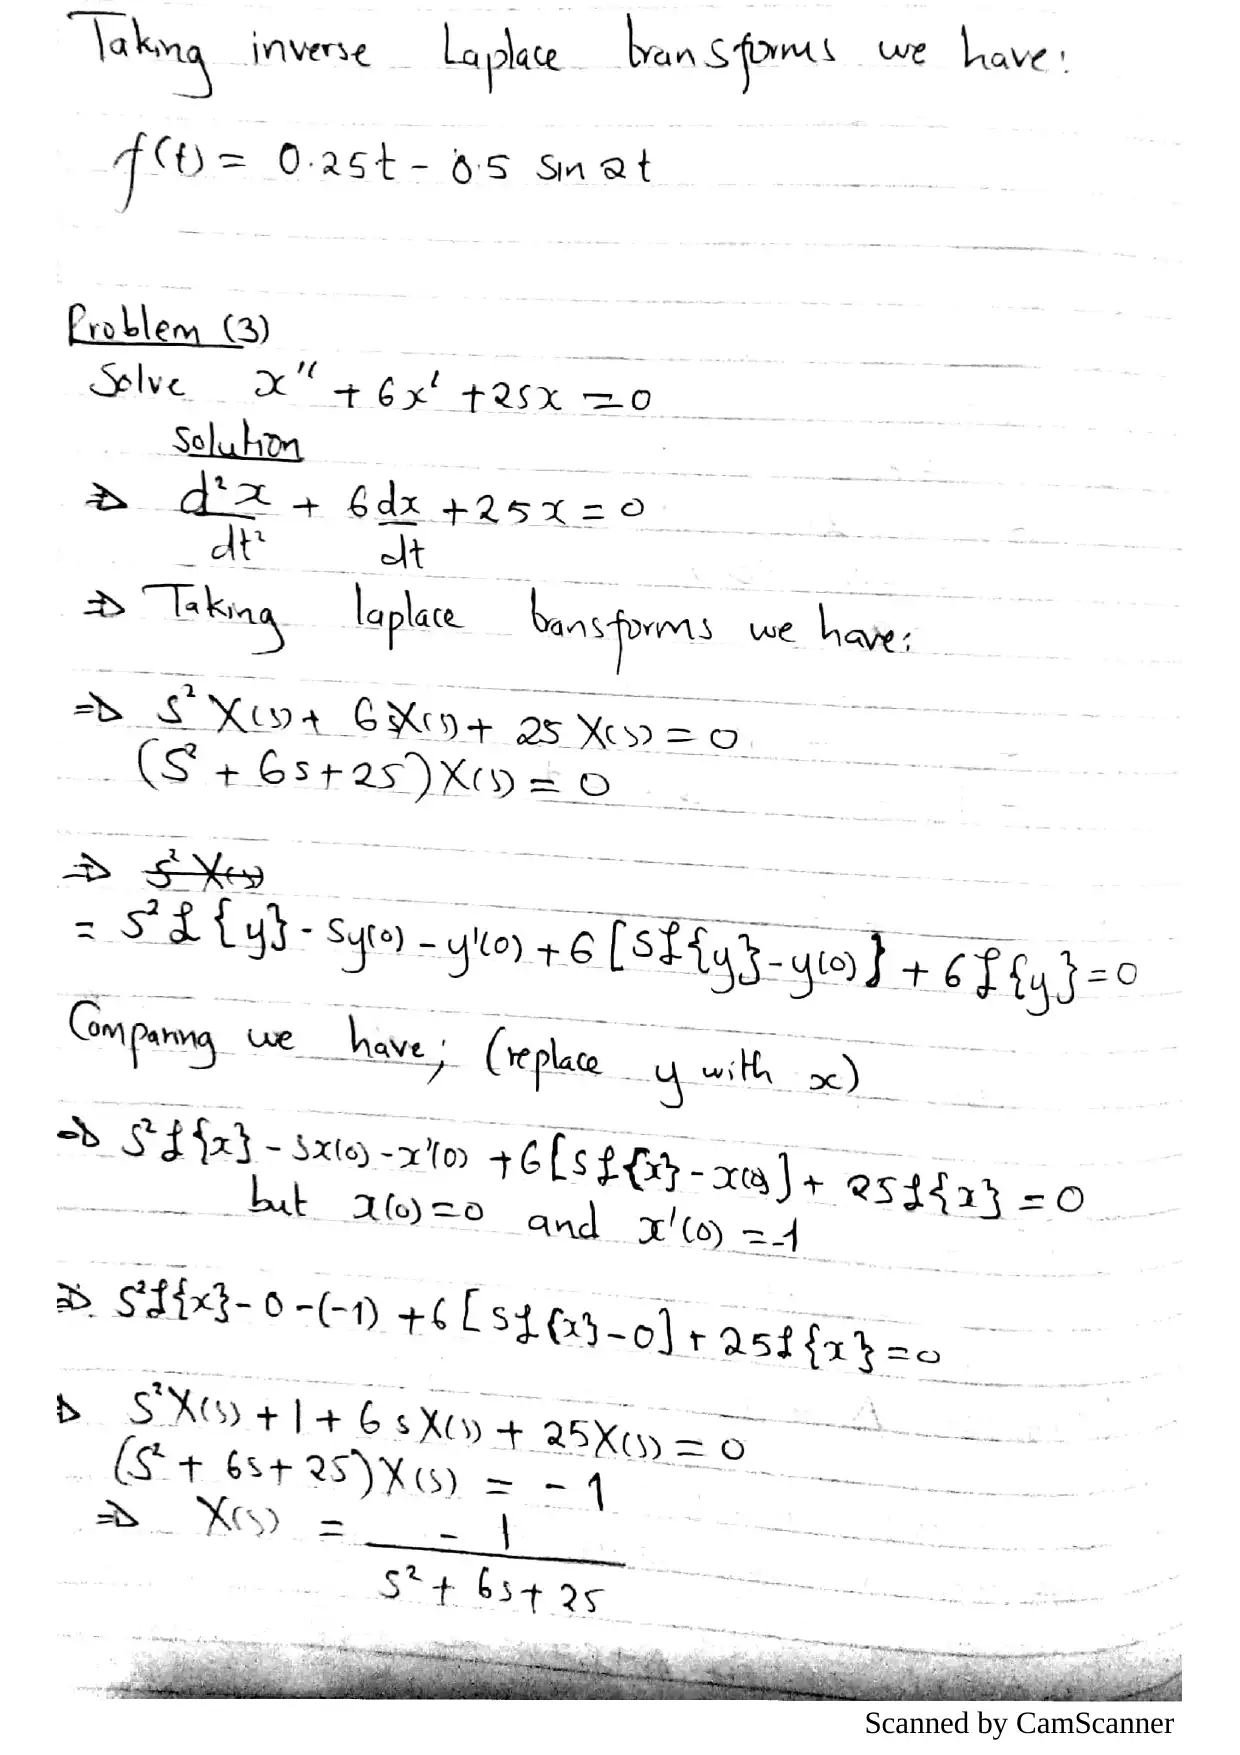 Taking inverse Laplace transforms we have:
f(t) = 0.25t - 0.5 sin 2t
Problem (3)
Solve x'' + 6x' + 25x = 0
Solution
⇒ d²x/dt² + 6dx/dt + 25x = 0
⇒ Taking laplace transforms we have:
⇒ S²X(s) + 6sX(s) + 25X(s) = 0
(S² + 6s + 25)X(s) = 0
⇒ S²X(s)
= S²ℒ{y} - Sy(0) - y'(0) + 6[Sℒ{y} - y(0)} + 6ℒ{y} = 0
Comparing we have; (replace y with x)
⇒ S²ℒ{x} - Sx(0) - x'(0) + 6[Sℒ{x} - x(0)] + 25ℒ{x} = 0
but x(0) = 0 and x'(0) = -1
⇒ S²ℒ{x} - 0 - (-1) + 6[Sℒ{x} - 0] + 25ℒ{x} = 0
⇒ S²X(s) + 1 + 6sX(s) + 25X(s) = 0
(S² + 6s + 25)X(s) = -1
⇒ X(s) = -1/(S² + 6s + 25)
Scanned by CamScanner